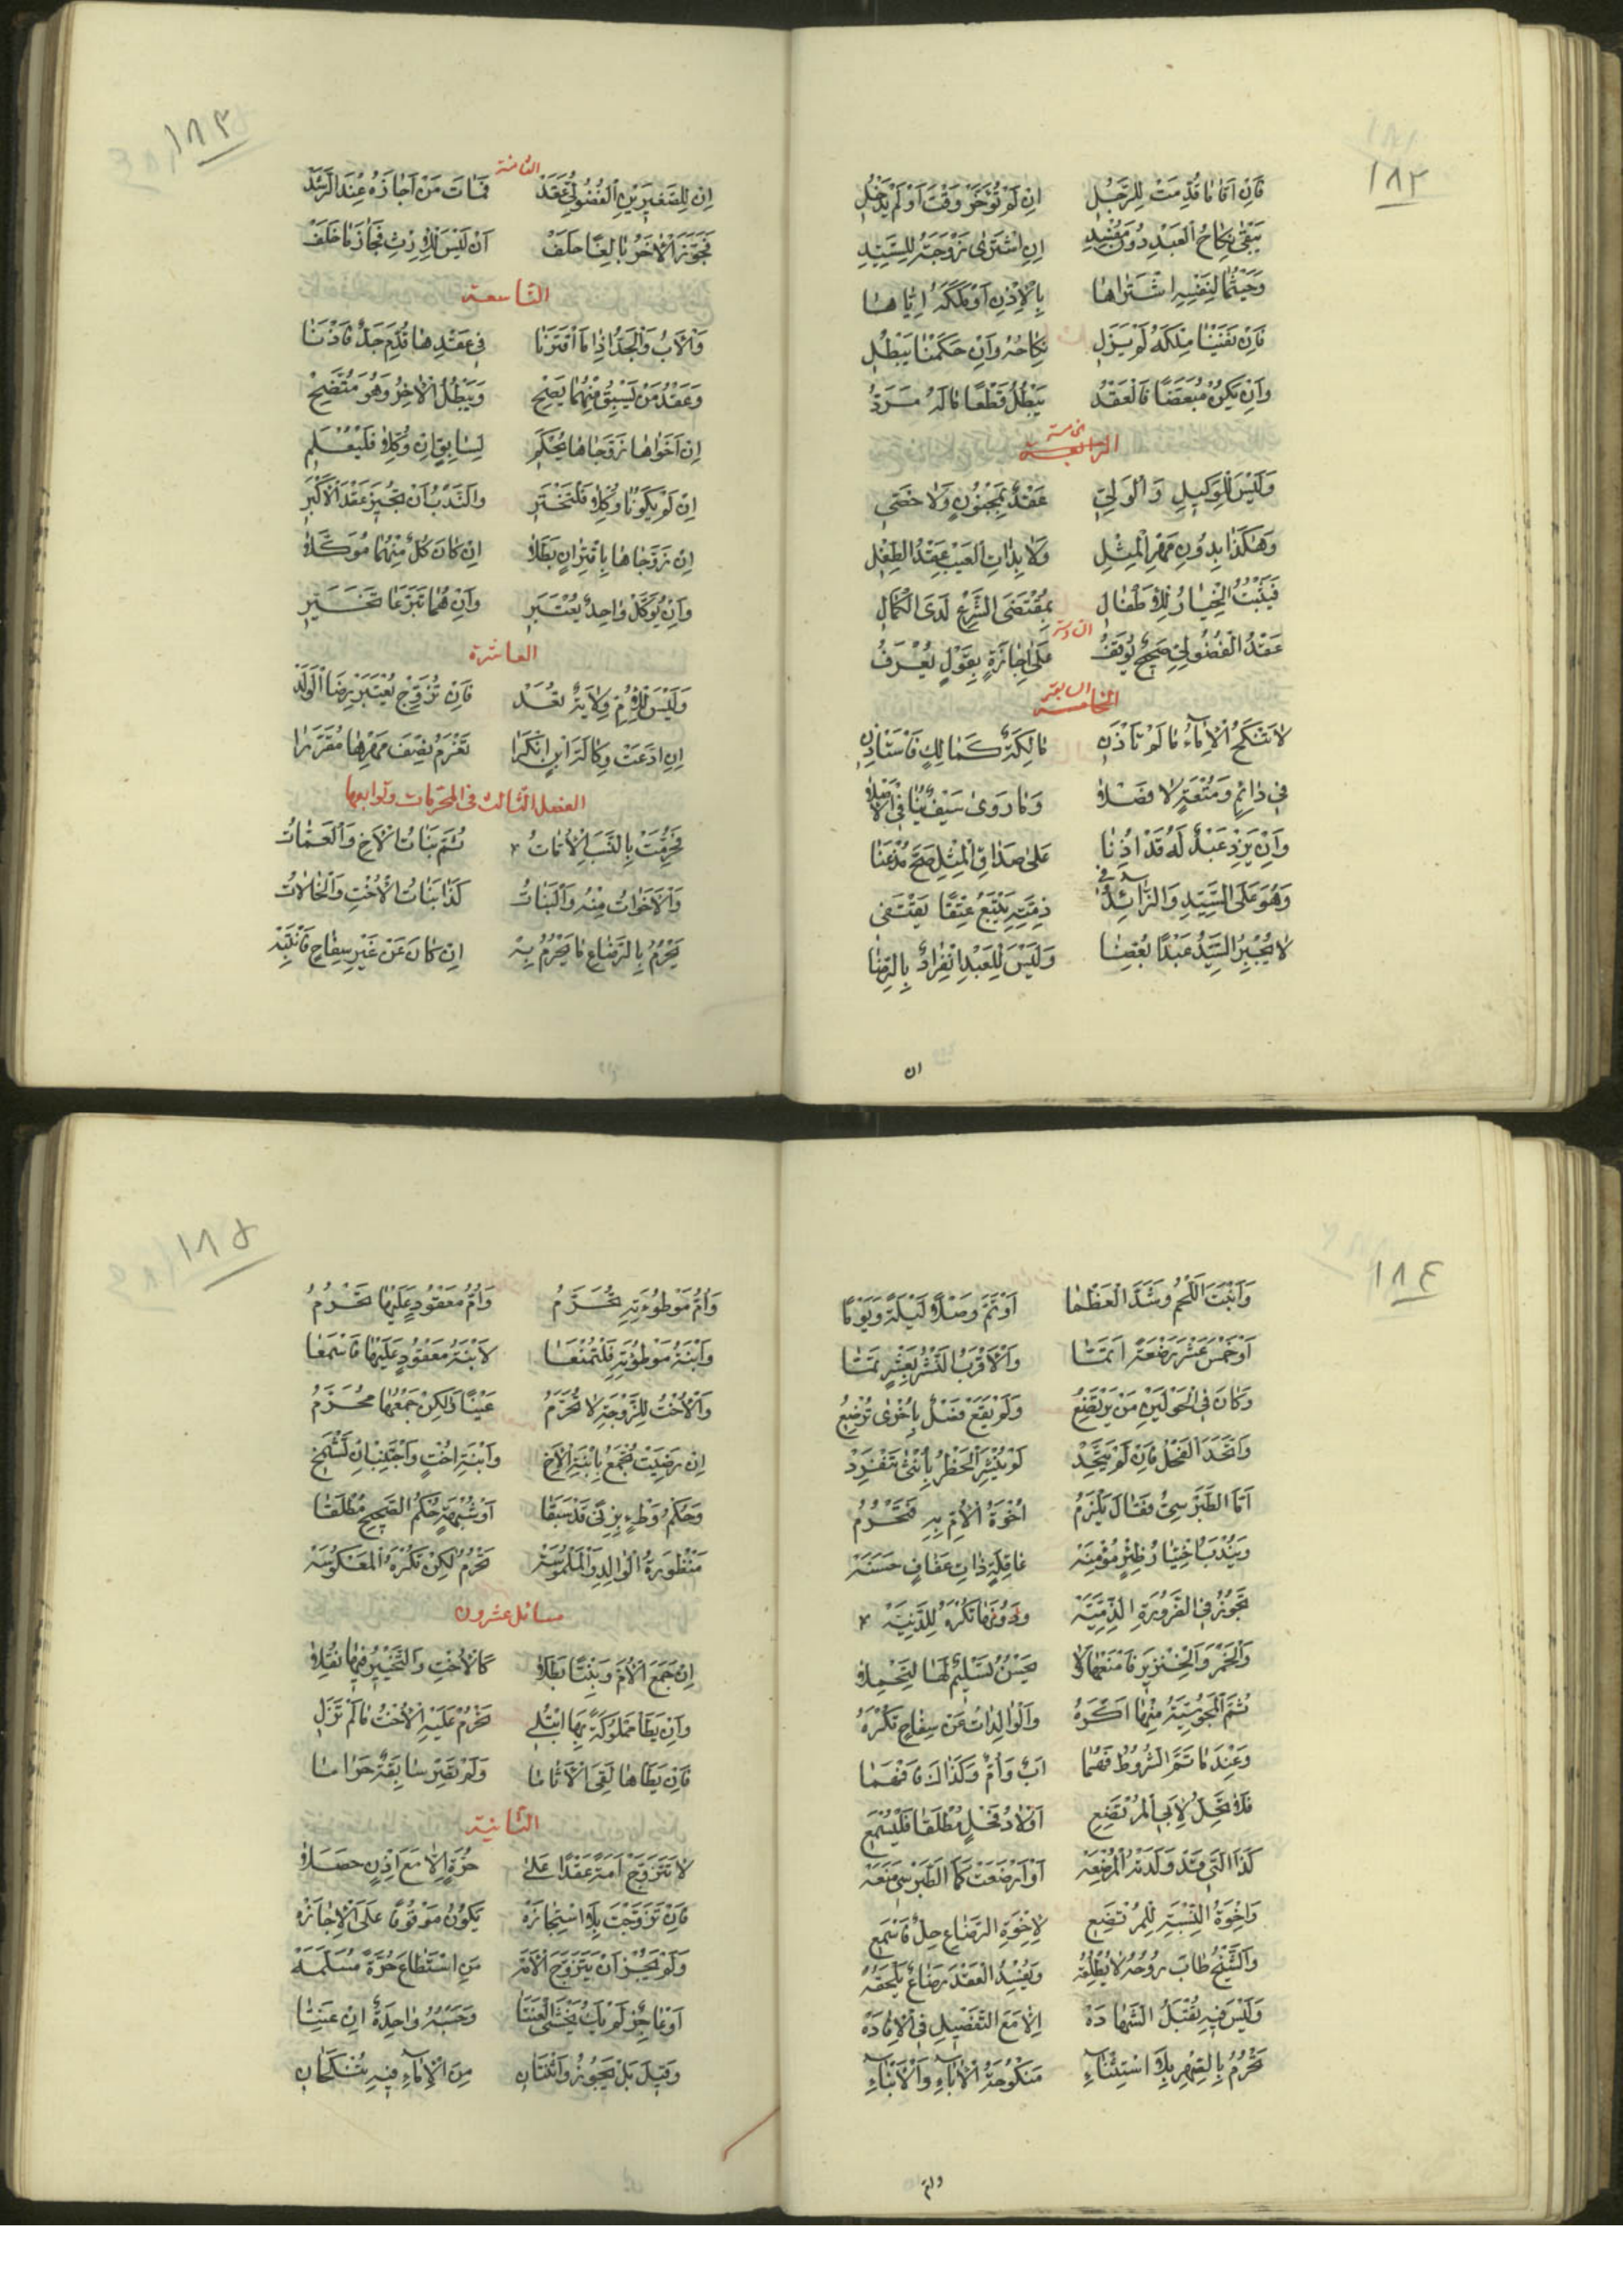 ١٨٢
فَاِنْ اَتٰامٰا قُدِّمَتْ لِلرَّجُلِ اِنْ لَمْ تُؤَخَّرْ وَقْتَ اَوْ لَمْ يَدْخُلِ
يَبْقىٰ نِكٰاحُ الْعَبْدِ دُونَ مُفْسِدِ اِنِ اشْتَرىٰ زَوْجَتَهُ لِلسَّيِّدِ
وَحَيْثُمٰا لِنَفْسِهِ اشْتَرٰاهٰا بِالْاِذْنِ اَوْ مَلَّكَهُ اِيّٰاهٰا
فَاِنْ نَفَيْنٰا مِلْكَهُ لَمْ يَزَلِ نِكٰاحُهُ وَاِنْ حَكَمْنٰا يَبْطُلِ
وَاِنْ يَكُنْ مُبَعَّضًا فَالْعَقْدُ يَبْطُلُ قَطْعًا مٰالَهُ مَرَدُّ
الرابعة خامسة
وَلَيْسَ لِلْوَكِيلِ وَالْوَلِيِّ عَقْدٌ بِمَجْنُونٍ وَلٰا خَصِيِّ
وَهٰكَذٰا بِدُونِ مَهْرِ الْمِثْلِ وَلٰا بِذٰاتِ الْعَيْبِ عَقْدُ الطِّفْلِ
فَيَثْبُتُ الْخِيٰارُ لِلْاَطْفٰالِ بِمُقْتَضَى الشَّرْعِ لَدَى الْكَمٰالِ
السادسة
عَقْدُ الْفُضُولِيِّ صَحِيحٌ يُوقَفُ عَلىٰ اِجٰازَةٍ بِقَوْلٍ يُعْرَفُ
الخامسة السابعة
لٰا تُنْكَحُ الْاِمٰاءُ مٰا لَمْ تَأْذَنِ مٰالِكَةٌ كَمٰالِكٍ فَاسْتَأْذِنِ
فِي دٰائِمٍ وَمُتْعَةٍ لٰا فَصْلٰا وَمٰا رَوىٰ سَيْفٌ يُنٰافِي الْاَصْلٰا
وَاِنْ يَزِدْ عَبْدٌ لَهُ قَدْ اُذِنٰا عَلىٰ صَدٰاقِ الْمِثْلِ صَحَّ مُذْعَنٰا
وَهُوَ عَلَى السَّيِّدِ وَالزّٰائِدُ فِي ذِمَّتِهِ يُتْبَعُ عِتْقًا يَقْتَفِي
لٰا يُجْبِرُ السَّيِّدُ عَبْدًا بُعِّضٰا وَلَيْسَ لِلْعَبْدِ انْفِرٰادٌ بِالرِّضٰا
ان
١٨٣
الثامنة
اِنْ لِلصَّغِيرَيْنِ الْفُضُولِيُّ عَقَدْ فَمٰاتَ مَنْ اَجٰازَهُ عِنْدَ الرَّشَدْ
فَجَوَّزَ الْاٰخَرُ بٰالِغًا حَلَفْ اَنْ لَيْسَ لِلْاِرْثِ فَجٰازَ مٰا خَلَفْ
التاسعة
وَالْاَبُ وَالْجَدُّ اِذٰا مَا اقْتَرَنٰا فِي عَقْدِهٰا قُدِّمَ جَدٌّ فَاذْنٰا
وَعَقْدُ مَنْ يَسْبِقُ مِنْهُمٰا يَصِحُّ وَيَبْطُلُ الْاٰخَرُ وَهُوَ مُتَّضِحْ
اِنْ اَخَوٰاهٰا زَوَّجٰاهٰا يُحْكَمِ لِسٰابِقٍ اِنْ وُكِّلٰا فَلْيُعْلَمِ
اِنْ لَمْ يَكُونٰا وُكِّلٰا فَلْتَخْتَرِ وَالنَّدْبُ اَنْ تُجِيزَ عَقْدَ الْاَكْبَرِ
اِنْ زَوَّجٰاهٰا بِاقْتِرٰانٍ بَطَلٰا اِنْ كٰانَ كُلٌّ مِنْهُمٰا مُوَكَّلٰا
وَاِنْ يُوَكَّلْ وٰاحِدٌ يُعْتَبَرِ وَاِنْ هُمٰا تَبَرَّعٰا تَخَيَّرِ
العاشرة
وَلَيْسَ لِلْاُمِّ وِلٰايَةٌ تُعَدْ فَاِنْ تُزَوِّجْ يُعْتَبَرْ رِضَا الْوَلَدْ
اِنِ ادَّعَتْ وِكٰالَةَ ابْنٍ انْكَرٰا تَغْرَمُ نِصْفَ مَهْرِهٰا مُقَرَّرٰا
الفصل الثالث فى المحرمات وتوابعها
تُحُرِّمَتْ بِالنَّسَبِ الْاُمّٰاتُ ثُمَّ بَنٰاتُ الْاَخِ وَالْعَمّٰاتُ
وَالْاَخَوٰاتُ مِنْهُ وَالْبَنٰاتُ كَذٰا بَنٰاتُ الْاُخْتِ وَالْخٰالٰاتُ
يَحْرُمُ بِالرَّضٰاعِ مٰا يَحْرُمُ بِهْ اِنْ كٰانَ عَنْ غَيْرِ سِفٰاحٍ فَانْتَبِهْ
١٨٤
وَاَنْبَتَ اللَّحْمَ وَشَدَّ الْعَظْمٰا اَوْ تَمَّ وَصْلًا لَيْلَةً وَيَوْمًا
اَوْ خَمْسَ عَشْرَ رَضْعَةً اَتَمَّتٰا وَالْاَقْرَبُ النَّشْرُ بِعَشْرٍ تَمَّتٰا
وَكٰانَ فِي الْحَوْلَيْنِ مَنْ يَرْتَضِعُ وَلَمْ يَقَعْ فَصْلٌ بِاُخْرىٰ تُرْضِعُ
وَاتَّحَدَ الْفَحْلُ فَاِنْ لَمْ يَتَّحِدْ لَمْ يُنْشَرِ الْحَظْرُ بِاُنْثىٰ تَنْفَرِدْ
اَمَّا الطَّبَرْسِيُّ فَقٰالَ يَلْزَمُ اُخُوَّةُ الْاُمِّ بِهِ فَتَحْرُمُ
وَيُنْدَبُ اخْتِيٰارُ ظِئْرٍ مُؤْمِنَهْ عٰاقِلَةٍ ذٰاتِ عَفٰافٍ حَسَنَهْ
تَجُوزُ فِي الضَّرُورَةِ الذِّمِّيَّهْ وَدُونَهٰا تُكْرَهُ لِلدَّنِيَّهْ
وَالْخَمْرَ وَالْخِنْزِيرَ فَامْنَعْهٰا وَلٰا يَحْسُنُ تَسْلِيمٌ لَهٰا لِتَحْمِلٰا
ثُمَّ الْمَجُوسِيَّةُ مِنْهٰا اَكْرَهُ وَالْوٰالِدٰاتُ عَنْ سِفٰاحٍ تُكْرَهُ
وَعِنْدَمٰا تَمَّ الشُّرُوطُ فَهُمٰا اَبٌ وَاُمٌّ وَكَذٰاكَ فَافْهَمٰا
فَلٰا تَحِلُّ لِاَبِي الْمُرْتَضِعِ اَوْلٰادُ فَحْلٍ مُطْلَقًا فَلْيُسْمَعِ
كَذَا الَّتِي قَدْ وَلَدَتْهُ الْمُرْضِعَهْ اَوْ اَرْضَعَتْ كَمَا الطَّبَرْسِي مَنَعَهْ
وَاِخْوَةُ النِّسْبَةِ لِلْمُرْتَضِعِ لِاِخْوَةِ الرَّضٰاعِ حِلٌّ فَاسْمَعِ
وَالشَّيْخُ طٰابَ رُوحُهُ لٰا يُطْلِقُهْ وَيُفْسِدُ الْعَقْدَ رَضٰاعٌ يَلْحَقُهْ
وَلَيْسَ فِيهِ تُقْبَلُ الشَّهٰادَهْ اِلّٰا مَعَ التَّفْصِيلِ فِي الْاِفٰادَهْ
تَحْرُمُ بِالصِّهْرِ بِلٰا اسْتِثْنٰاءِ مَنْكُوحَةُ الْاٰبٰاءِ وَالْاَبْنٰاءِ
وامّ
١٨٥
وَاُمُّ مَوْطُوءَتِهِ تُحَرَّمُ وَاُمُّ مَعْقُودٍ عَلَيْهٰا تَحْرُمُ
وَابْنَةُ مَوْطُوءَتِهِ فَلْتُمْنَعٰا لَابْنَةُ مَعْقُودٍ عَلَيْهٰا فَاسْمَعٰا
وَالْاُخْتُ لِلزَّوْجَةِ لٰا تُحَرَّمُ عَيْنًا وَلٰكِنْ جَمْعُهٰا مُحَرَّمُ
اِنْ رَضِيَتْ تُجْمَعُ بِابْنَةِ الْاَخِ وَابْنَةِ اُخْتٍ وَاجْتَنِبْ اِنْ تَشْمَخِ
وَحُكْمُ وَطْءٍ بِزِنىً قَدْ سَبَقٰا اَوْ شُبْهَةٍ حُكْمُ الصَّحِيحِ مُطْلَقٰا
مَنْظُورَةُ الْوٰالِدِ وَالْمَلْمُوسَهْ تَحْرُمُ لٰكِنْ تُكْرَهُ الْمَعْكُوسَهْ
مسائل عشرون
اِنْ جَمَعَ الْاُمَّ وَبِنْتًا بَطَلٰا كَالْاُخْتِ وَالتَّخْيِيرُ فِيهٰا نُقِلٰا
وَاِنْ يَطَأْ مَمْلُوكَةً بِهَا ابْتُلِي تَحْرُمْ عَلَيْهِ الْاُخْتُ مٰا لَمْ تَزُلِ
فَاِنْ يَطَأْهٰا لَقِيَ الْاَثٰامٰا وَلَمْ تَصِرْ سٰابِقَةٌ حَرٰامٰا
الثانية
لٰا تَتَزَوَّجْ اَمَةً عَقْدًا عَلىٰ حُرَّةٍ اِلّٰا مَعَ اِذْنٍ حَصَلٰا
فَاِنْ تَزَوَّجْتَ بِلَا اسْتِجٰازَهْ يَكُونُ مَوْقُوفًا عَلَى الْاِجٰازَهْ
وَلَمْ يَجُزْ اَنْ يَتَزَوَّجَ الْاَمَهْ مَنِ اسْتَطٰاعَ حُرَّةً مُسَلَّمَهْ
اَوْ عٰاجِزٌ لَمْ يَكُ يَخْشَى الْعَنَتٰا وَحَسْبُهُ وٰاحِدَةٌ اِنْ عَنِتٰا
وَقِيلَ بَلْ يَجُوزُ وَاثْنَتٰانِ مِنَ الْاِمٰاءِ فِيهِ تُنْكَحٰانِ